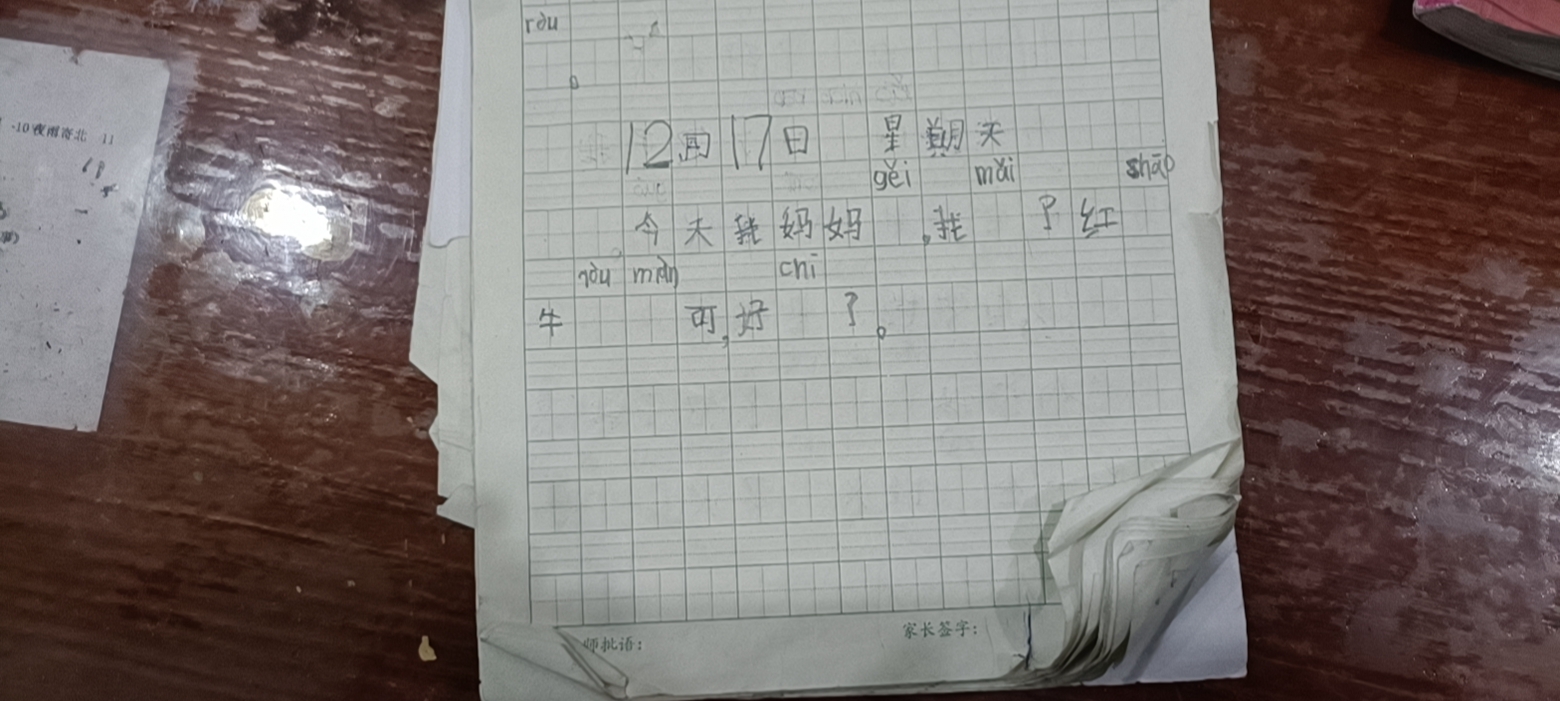 ròu
。
12月17日 星期天
gěi mǎi shāo
今天我妈妈 ,我 了红
ròu miàn chī
牛 可,好 了。
师批语：
家长签字：
-10夜雨寄北 11